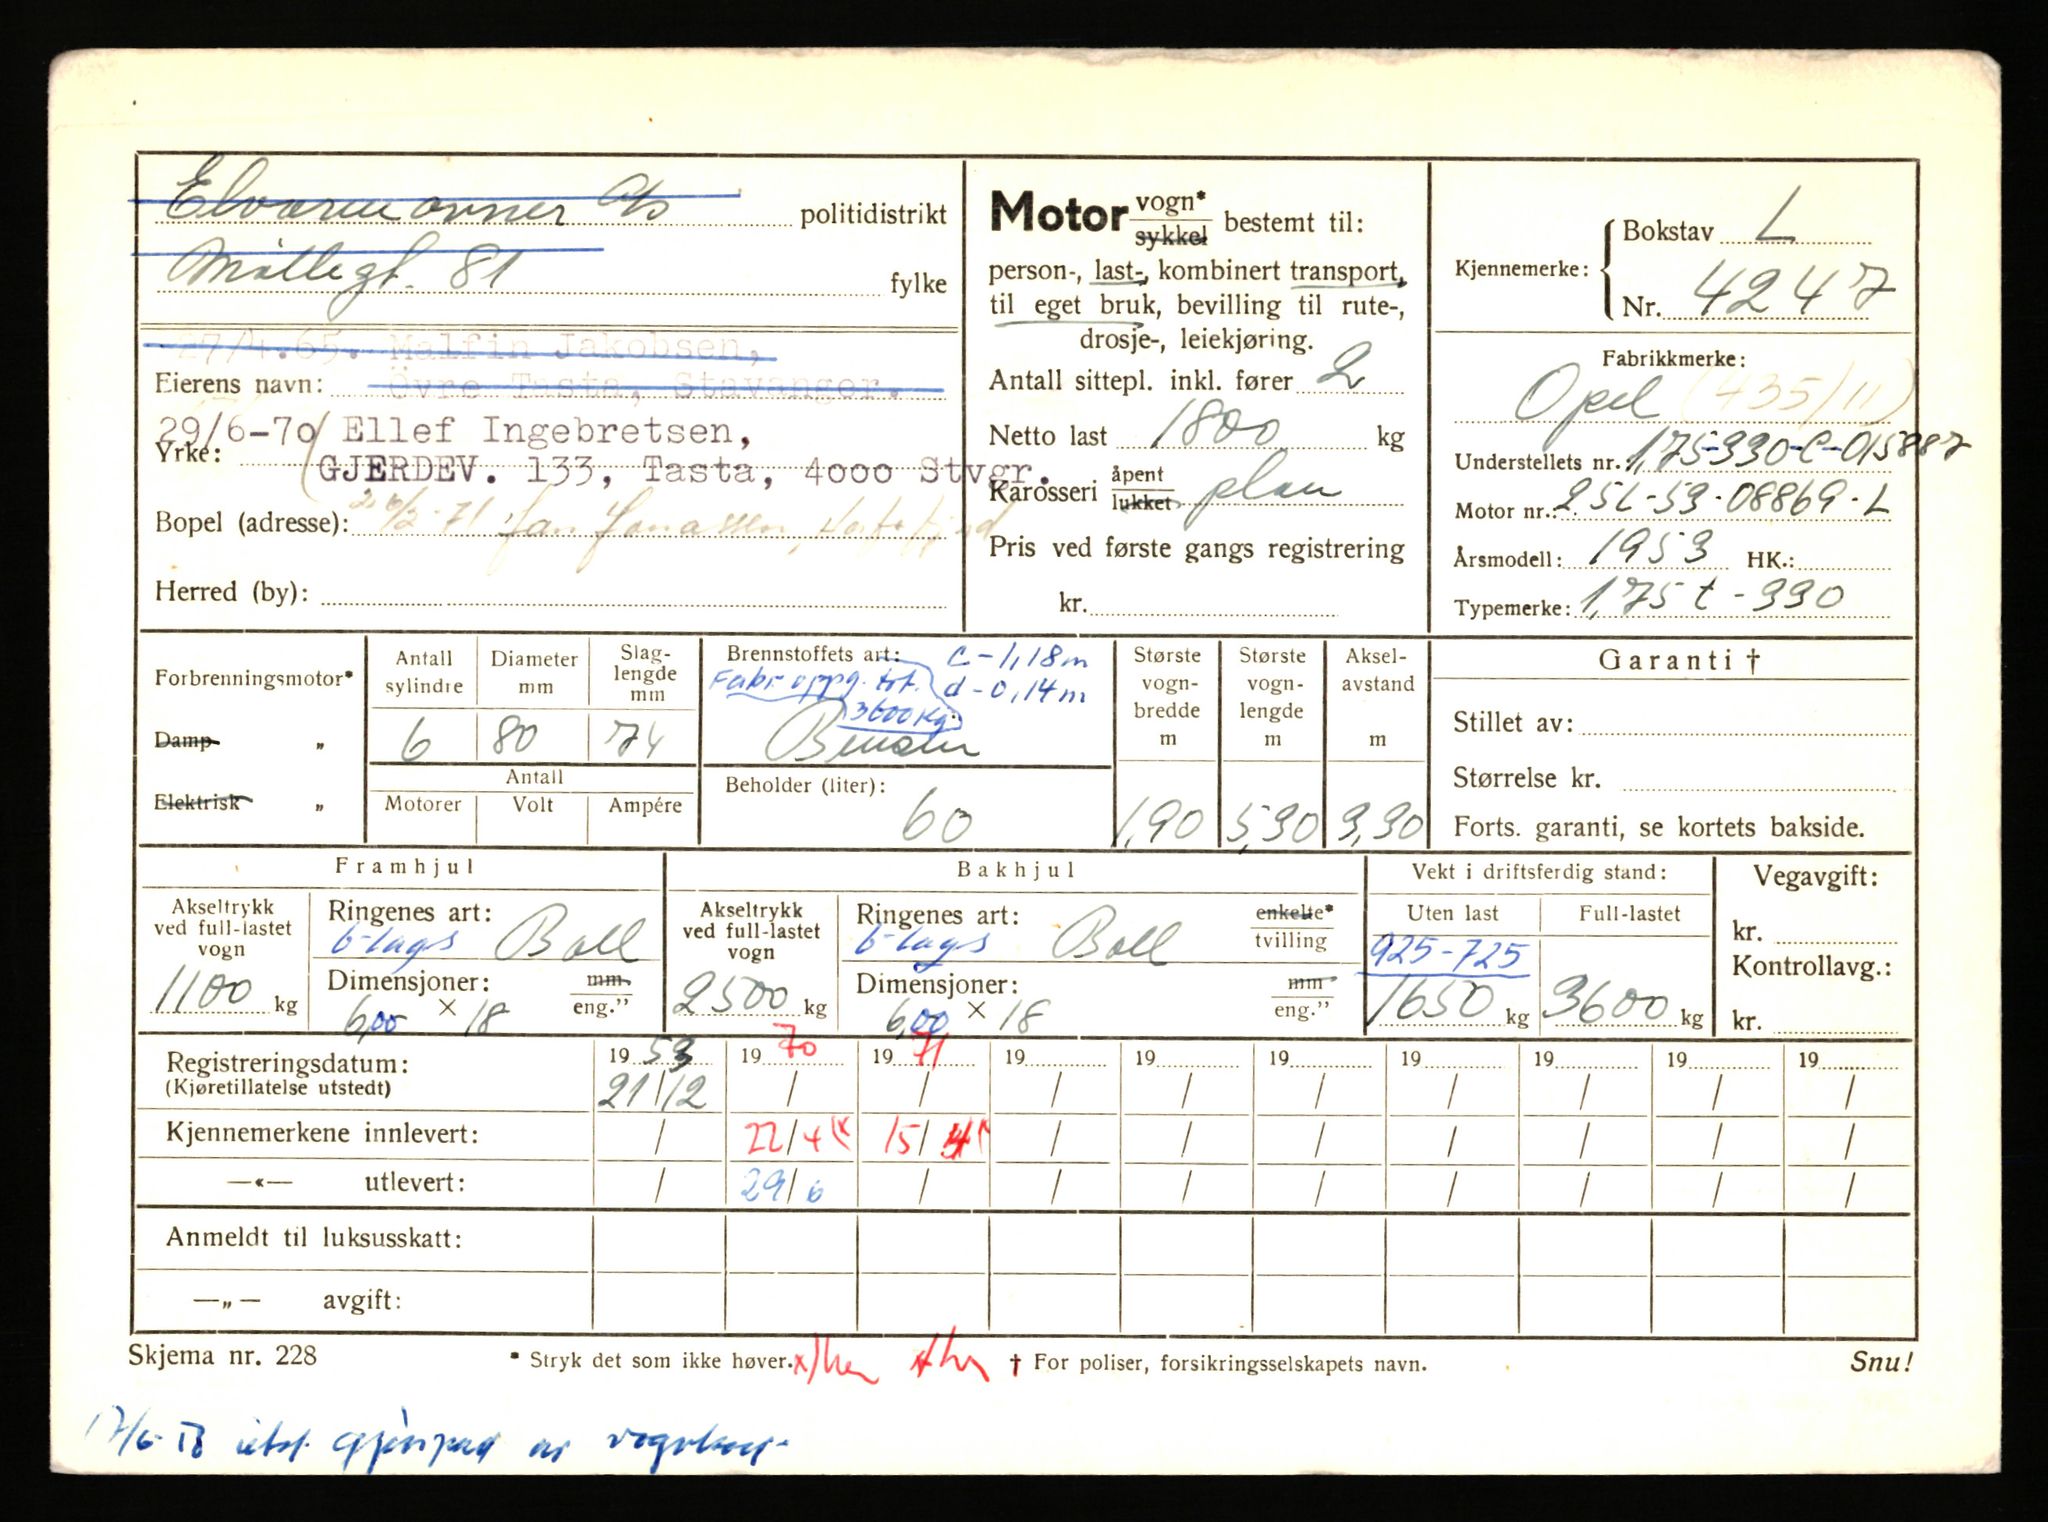 Elvarme ovner A/s politidistrikt
Møllegt. 81 fylke
27/4.65. Malfin Jakobsen,
Eierens navn: Övre Tasta, Stavanger.
29/6-70 Ellef Ingebretsen,
Yrke: GJERDEV. 133, Tasta, 4000 Stvgr.
Bopel (adresse): 26/2-71 Jan Jonassen,
Herred (by):
Motor vogn* sykkel bestemt til:
person-, last-, kombinert transport,
til eget bruk, bevilling til rute-,
drosje-, leiekjøring.
Antall sittepl. inkl. fører 2
Netto last 1800 kg
Karosseri åpent lukket plan
Pris ved første gangs registrering
kr.
Kjennemerke: Bokstav L
Nr. 4247
Fabrikkmerke:
Opel (435/11)
Understellets nr. 1,75-330-C-015887
Motor nr.: 25L-53-08869-L
Årsmodell: 1953 HK.:
Typemerke: 1,75 t-330
Forbrenningsmotor*
Damp „
Elektrisk „
Antall sylindre Diameter mm Slaglengde mm
6 80 74
Antall
Motorer Volt Ampére
Brennstoffets art: C-1,18m
Fabr. oppg. tot. d-0,14m
3600 kg.
Bensin
Beholder (liter):
60
Største vognbredde m Største vognlengde m Akselavstand m
1,90 5,30 3,30
Garanti †
Stillet av:
Størrelse kr.
Forts. garanti, se kortets bakside.
Framhjul
Akseltrykk ved full-lastet vogn
1100 kg
Ringenes art:
6-lags Ball
Dimensjoner: mm
6,00 × 18 eng.”
Bakhjul
Akseltrykk ved full-lastet vogn
2500 kg
Ringenes art: enkelte*
6-lags Ball tvilling
Dimensjoner: mm
6,00 × 18 eng.”
Vekt i driftsferdig stand:
Uten last Full-lastet
925-725
1650 kg 3600 kg
Vegavgift:
kr.
Kontrollavg.:
kr.
Registreringsdatum: 19 53 19 70 19 71 19 19 19 19 19 19 19
(Kjøretillatelse utstedt) 21/12 / / / / / / / / /
Kjennemerkene innlevert: / 22/4 (x 15/4 / / / / / / /
—«— utlevert: / 29/6 / / / / / / / /
Anmeldt til luksusskatt:
—„— avgift:
Skjema nr. 228 * Stryk det som ikke høver. † For poliser, forsikringsselskapets navn. Snu!